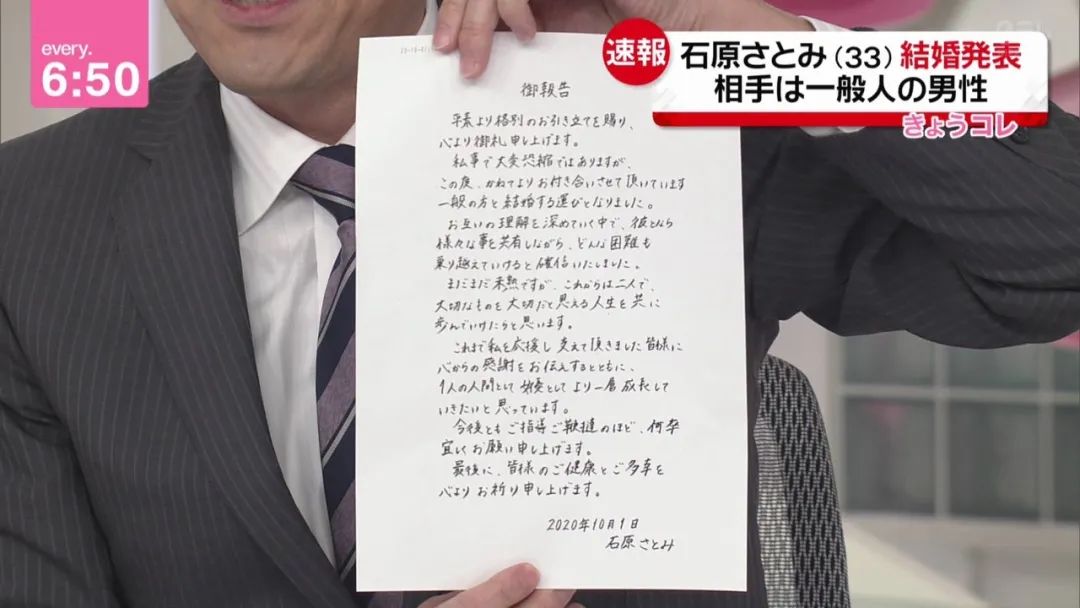 every.
6:50
速報
石原さとみ(33)結婚発表
相手は一般人の男性
きょうコレ
御報告
平素より格別のお引き立てを賜り、
心より御礼申し上げます。
私事で大変恐縮ではありますが、
この度、かねてよりお付き合いさせて頂いています
一般の方と結婚する運びとなりました。
お互いの理解を深めていく中で、彼となら
様々な事を共有しながら、どんな困難も
乗り越えていけると確信いたしました。
まだまだ未熟ですが、これからは二人で、
大切なものを大切だと思える人生を共に
歩んでいけたらと思います。
これまで私を応援し支えて頂きました皆様に
心からの感謝をお伝えするとともに、
1人の人間として 女優としてより一層成長して
いきたいと思っています。
今後ともご指導ご鞭撻のほど、何卒
宜しくお願い申し上げます。
最後に、皆様のご健康とご多幸を
心よりお祈り申し上げます。
2020年10月1日
石原さとみ